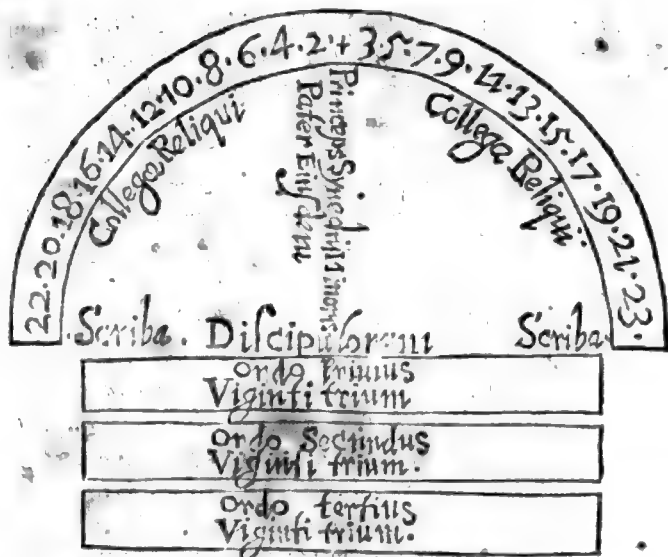 22·20·18·16·14·12·10·8·6·4·2·+·3·5·7·9·11·13·15·17·19·21·23·
Collegæ Reliqui
Princeps Synedrij Minoris
Pater Eiusdem
Collegæ Reliqui
Scriba. Discipulorum Scriba.
Ordo primus
Viginti trium
Ordo Secundus
Viginti trium.
Ordo tertius
Viginti trium.